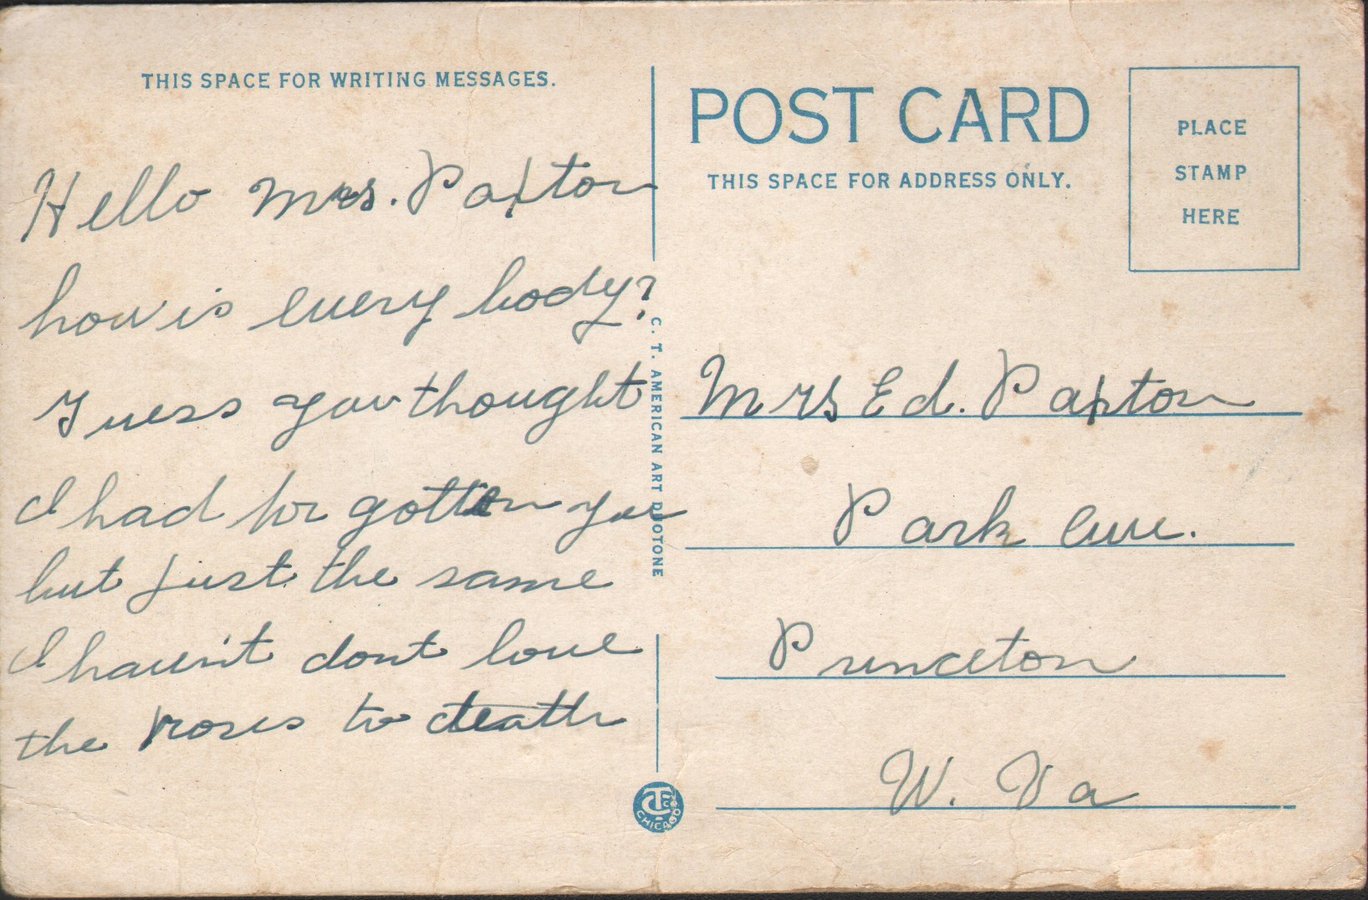 THIS SPACE FOR WRITING MESSAGES.
Hello Mrs. Paxton
how is every body?
Guess you thought
I had for gotten you
but just the same
I havent dont love
the roses to death
C. T. AMERICAN ART DUOTONE
POST CARD
THIS SPACE FOR ADDRESS ONLY.
PLACE
STAMP
HERE
Mrs Ed. Paxton
Park Ave.
Princeton
W. Va
CHICAGO